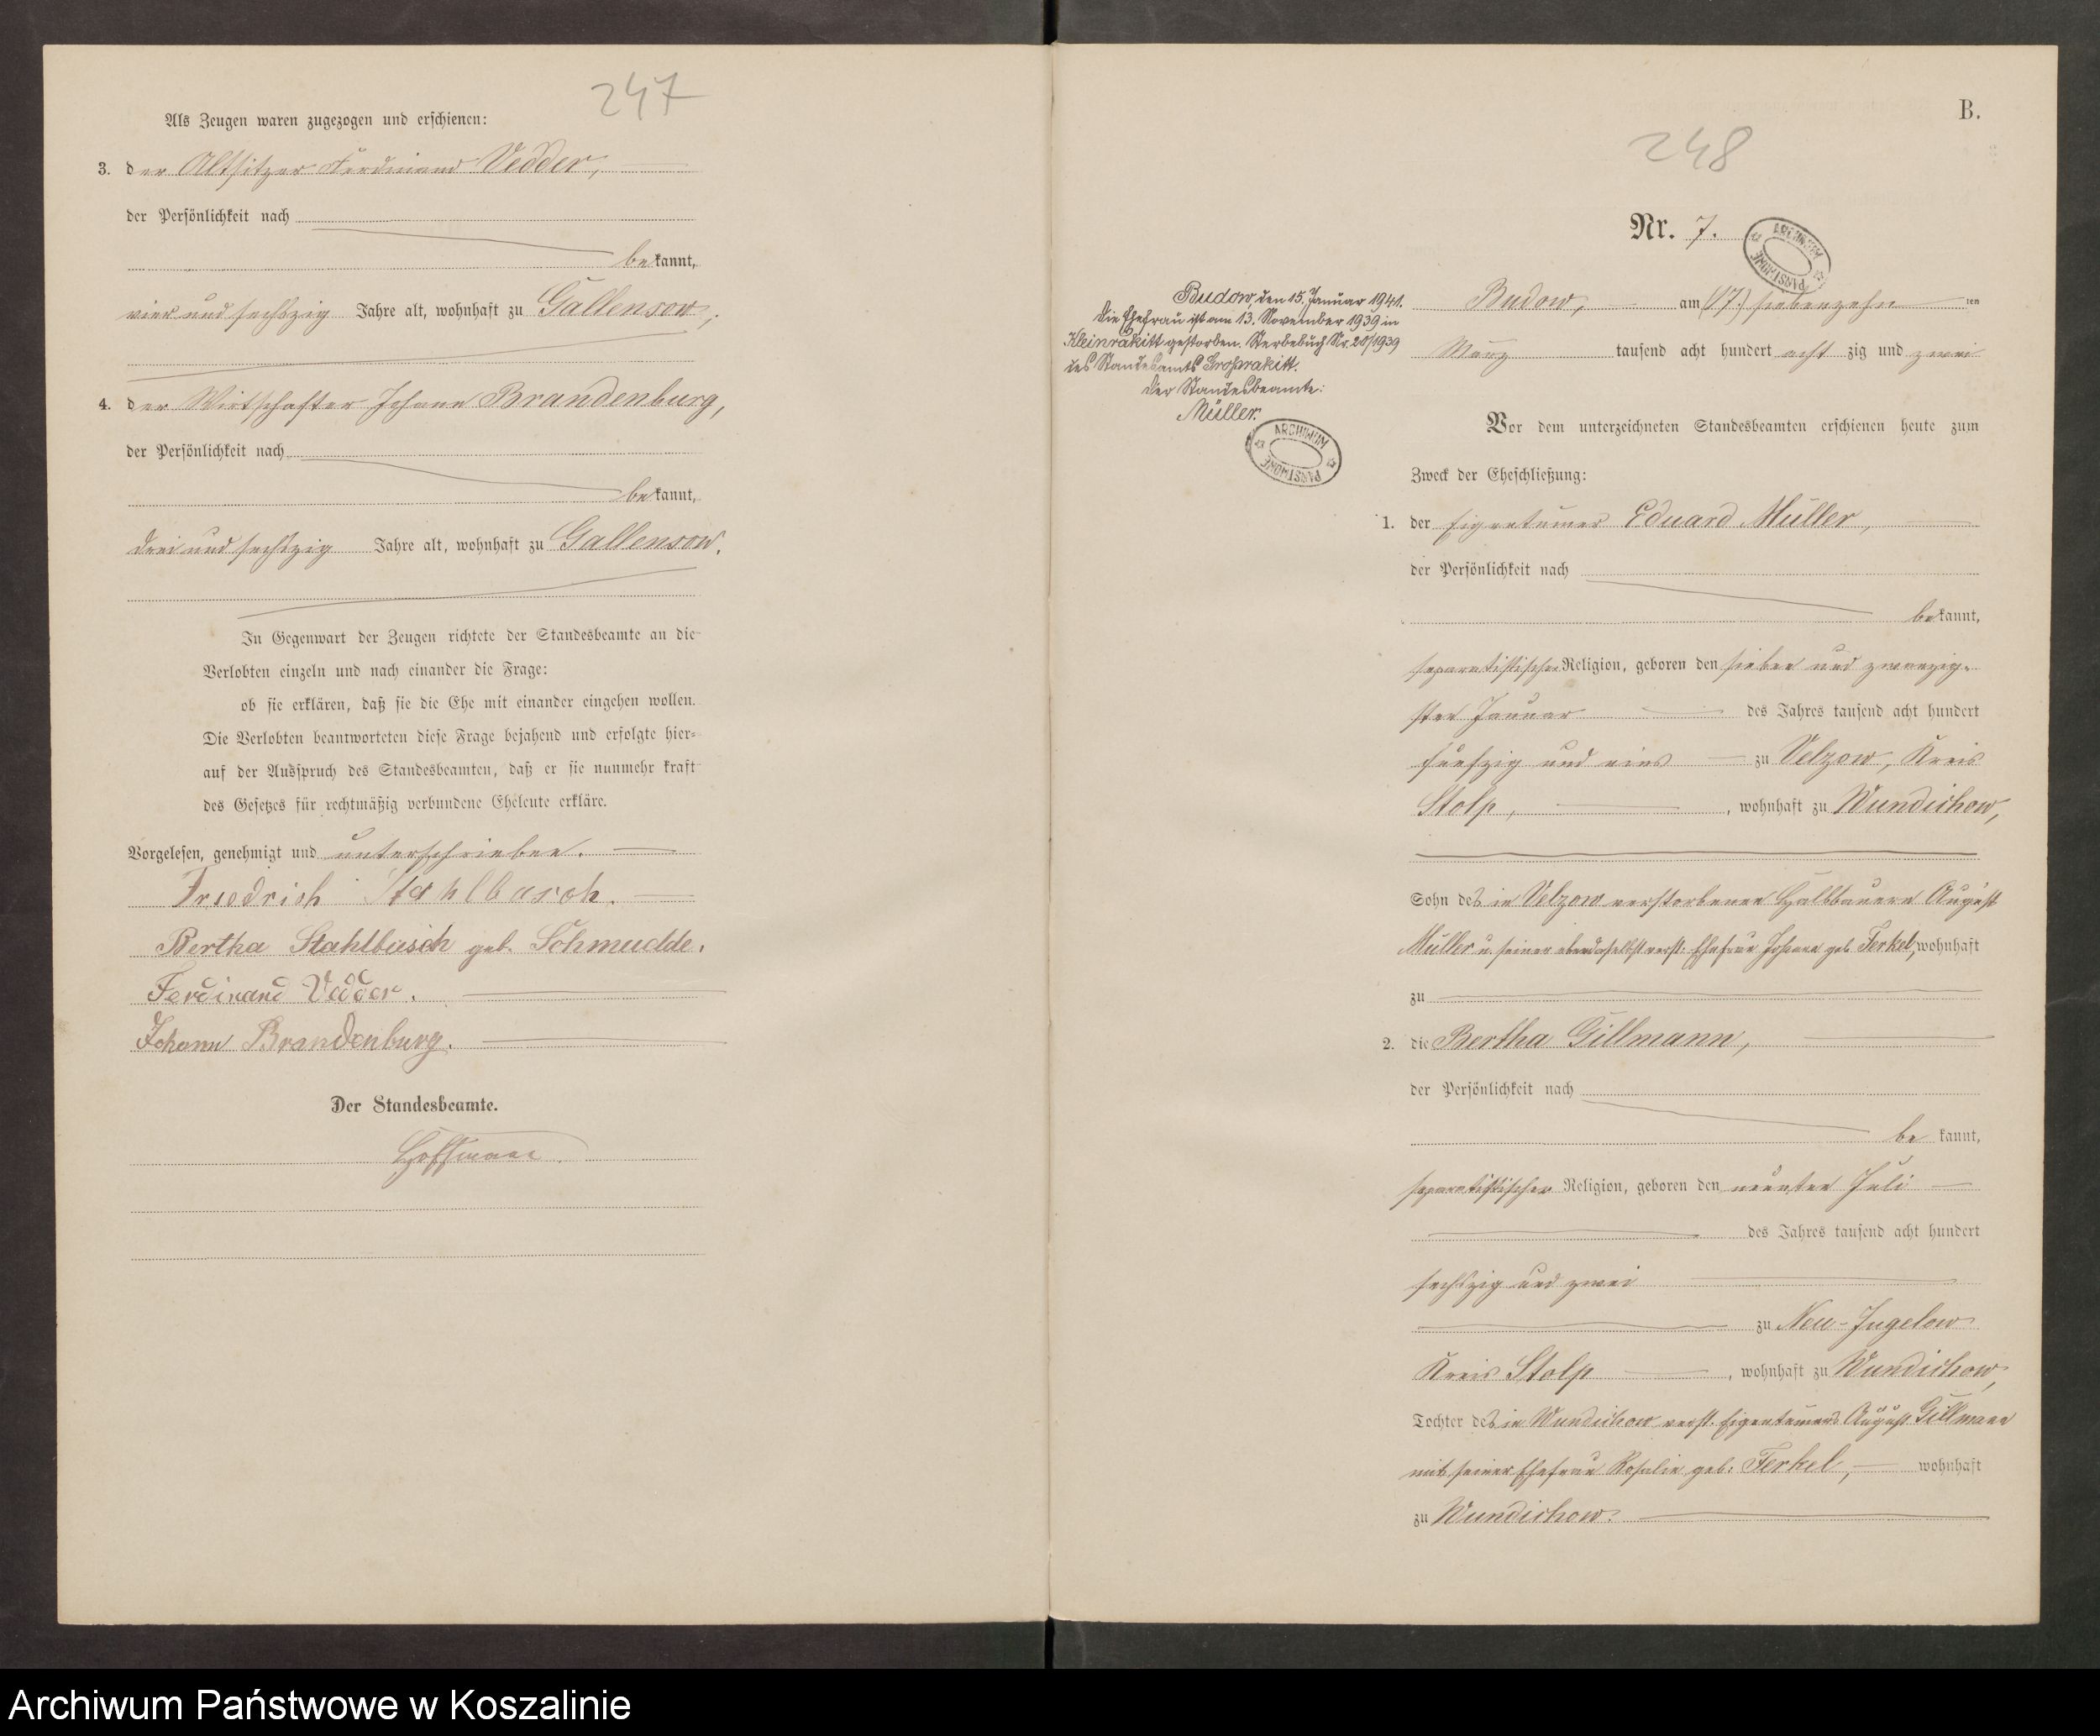 247
Als Zeugen waren zugezogen und erschienen:
3. der Altsitzer Ferdinand Vedder,
der Persönlichkeit nach
bekannt,
vier und sechszig Jahre alt, wohnhaft zu Gallensow,
4. der Wirthschafter Johann Brandenburg,
der Persönlichkeit nach
bekannt,
drei und sechszig Jahre alt, wohnhaft zu Gallensow.
In Gegenwart der Zeugen richtete der Standesbeamte an die
Verlobten einzeln und nach einander die Frage:
ob sie erklären, daß sie die Ehe mit einander eingehen wollen.
Die Verlobten beantworteten diese Frage bejahend und erfolgte hier-
auf der Ausspruch des Standesbeamten, daß er sie nunmehr kraft
des Gesetzes für rechtmäßig verbundene Eheleute erkläre.
Vorgelesen, genehmigt und unterschrieben.
Friedrich Stahlbusch.
Bertha Stahlbusch geb. Schmudde.
Ferdinand Vedder.
Johann Brandenburg.
Der Standesbeamte.
Hoffmann.
B.
248
Nr. 7.
ARCHIWUM PAŃSTWOWE
Budow, den 15. Januar 1941.
Die Ehefrau ist am 13. November 1939 in
Kleinrakitt gestorben. Sterbebuch Nr. 20/1939
des Standesamts Großrakitt.
Der Standesbeamte:
Müller.
ARCHIWUM PAŃSTWOWE
Budow, am (17.) siebenzehn ten
März tausend acht hundert acht zig und zwei
Vor dem unterzeichneten Standesbeamten erschienen heute zum
Zweck der Eheschließung:
1. der Eigentümer Eduard Müller,
der Persönlichkeit nach
bekannt,
separatistischer Religion, geboren den sieben und zwanzig-
sten Januar des Jahres tausend acht hundert
fünfzig und eins zu Velzow, Kreis
Stolp, wohnhaft zu Wundichow,
Sohn des in Velzow verstorbenen Halbbauern August
Müller u. seiner ebendaselbst verst. Ehefrau Johanne geb. Ferkel, wohnhaft
zu
2. die Bertha Gillmann,
der Persönlichkeit nach
be kannt,
separatistischer Religion, geboren den neunten Juli
des Jahres tausend acht hundert
sechszig und zwei
zu Neu-Jugelow
Kreis Stolp, wohnhaft zu Wundichow,
Tochter des in Wundichow verst. Eigentümers August Gillmann
und seiner Ehefrau Rosalie geb. Ferkel, wohnhaft
zu Wundichow.
Archiwum Państwowe w Koszalinie